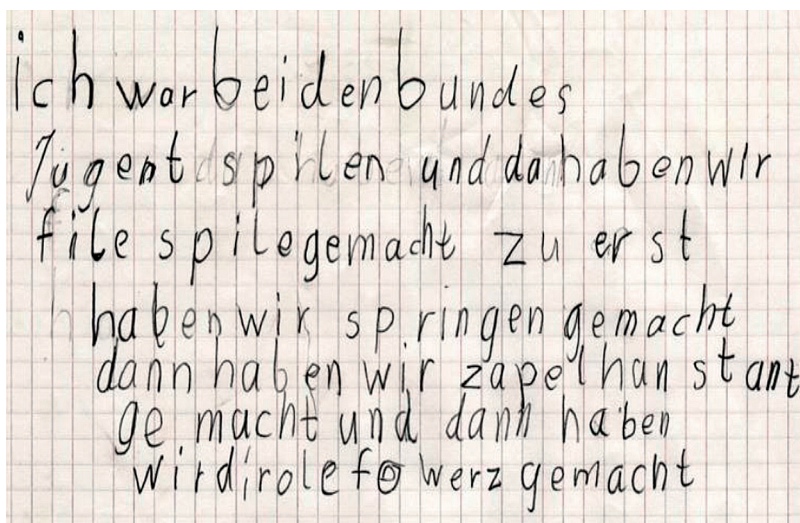 ich war beidenbundes
Jugent spilen und danhaben wir
file spilegemacht zu erst
haben wir springen gemacht
dann haben wir zapelhanstant
ge macht und dann haben
wirdirolefowerz gemacht